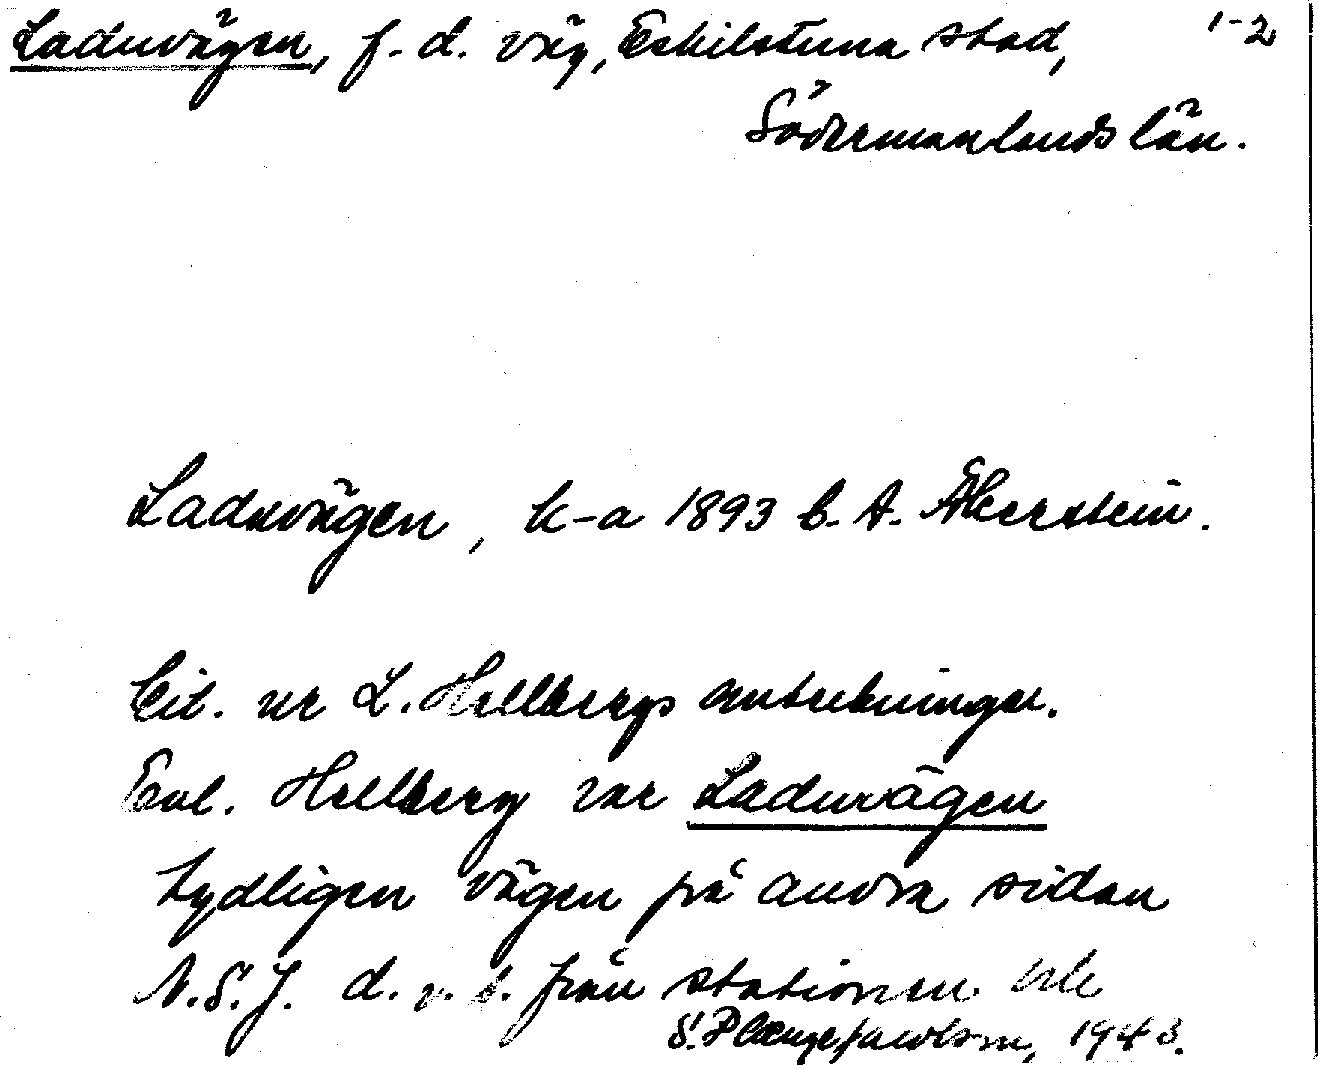 Laduvägen, f.d. väg, Eskilstuna stad, 1-2
Södermanlands län.
Laduvägen, k-a 1893 b. A. Åkerstein.
Cit. ur L. Hellbergs anteckningar.
Enl. Hellberg var Laduvägen
tydligen vägen på andra sidan
N.S.J. d.v.s. från stationen
S. Plænge Jacobson, 1948.